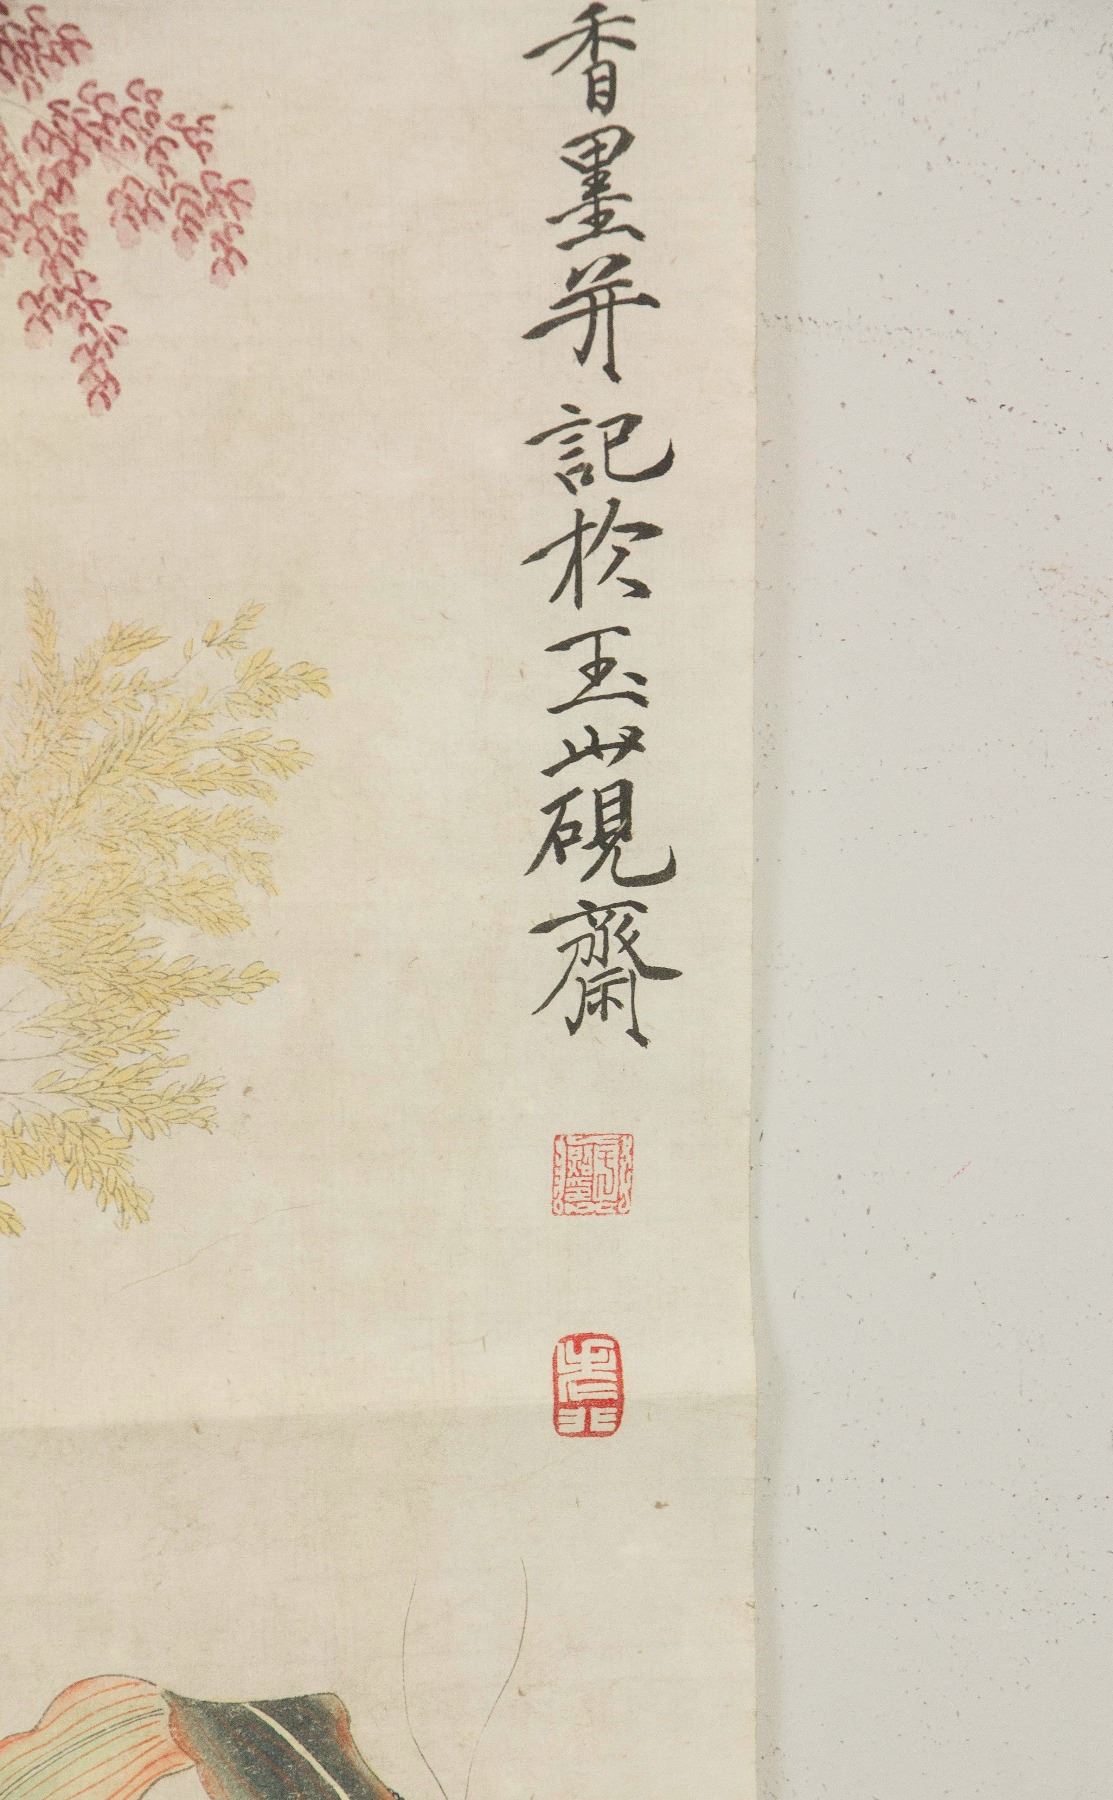 香墨并記於玉山硯齋